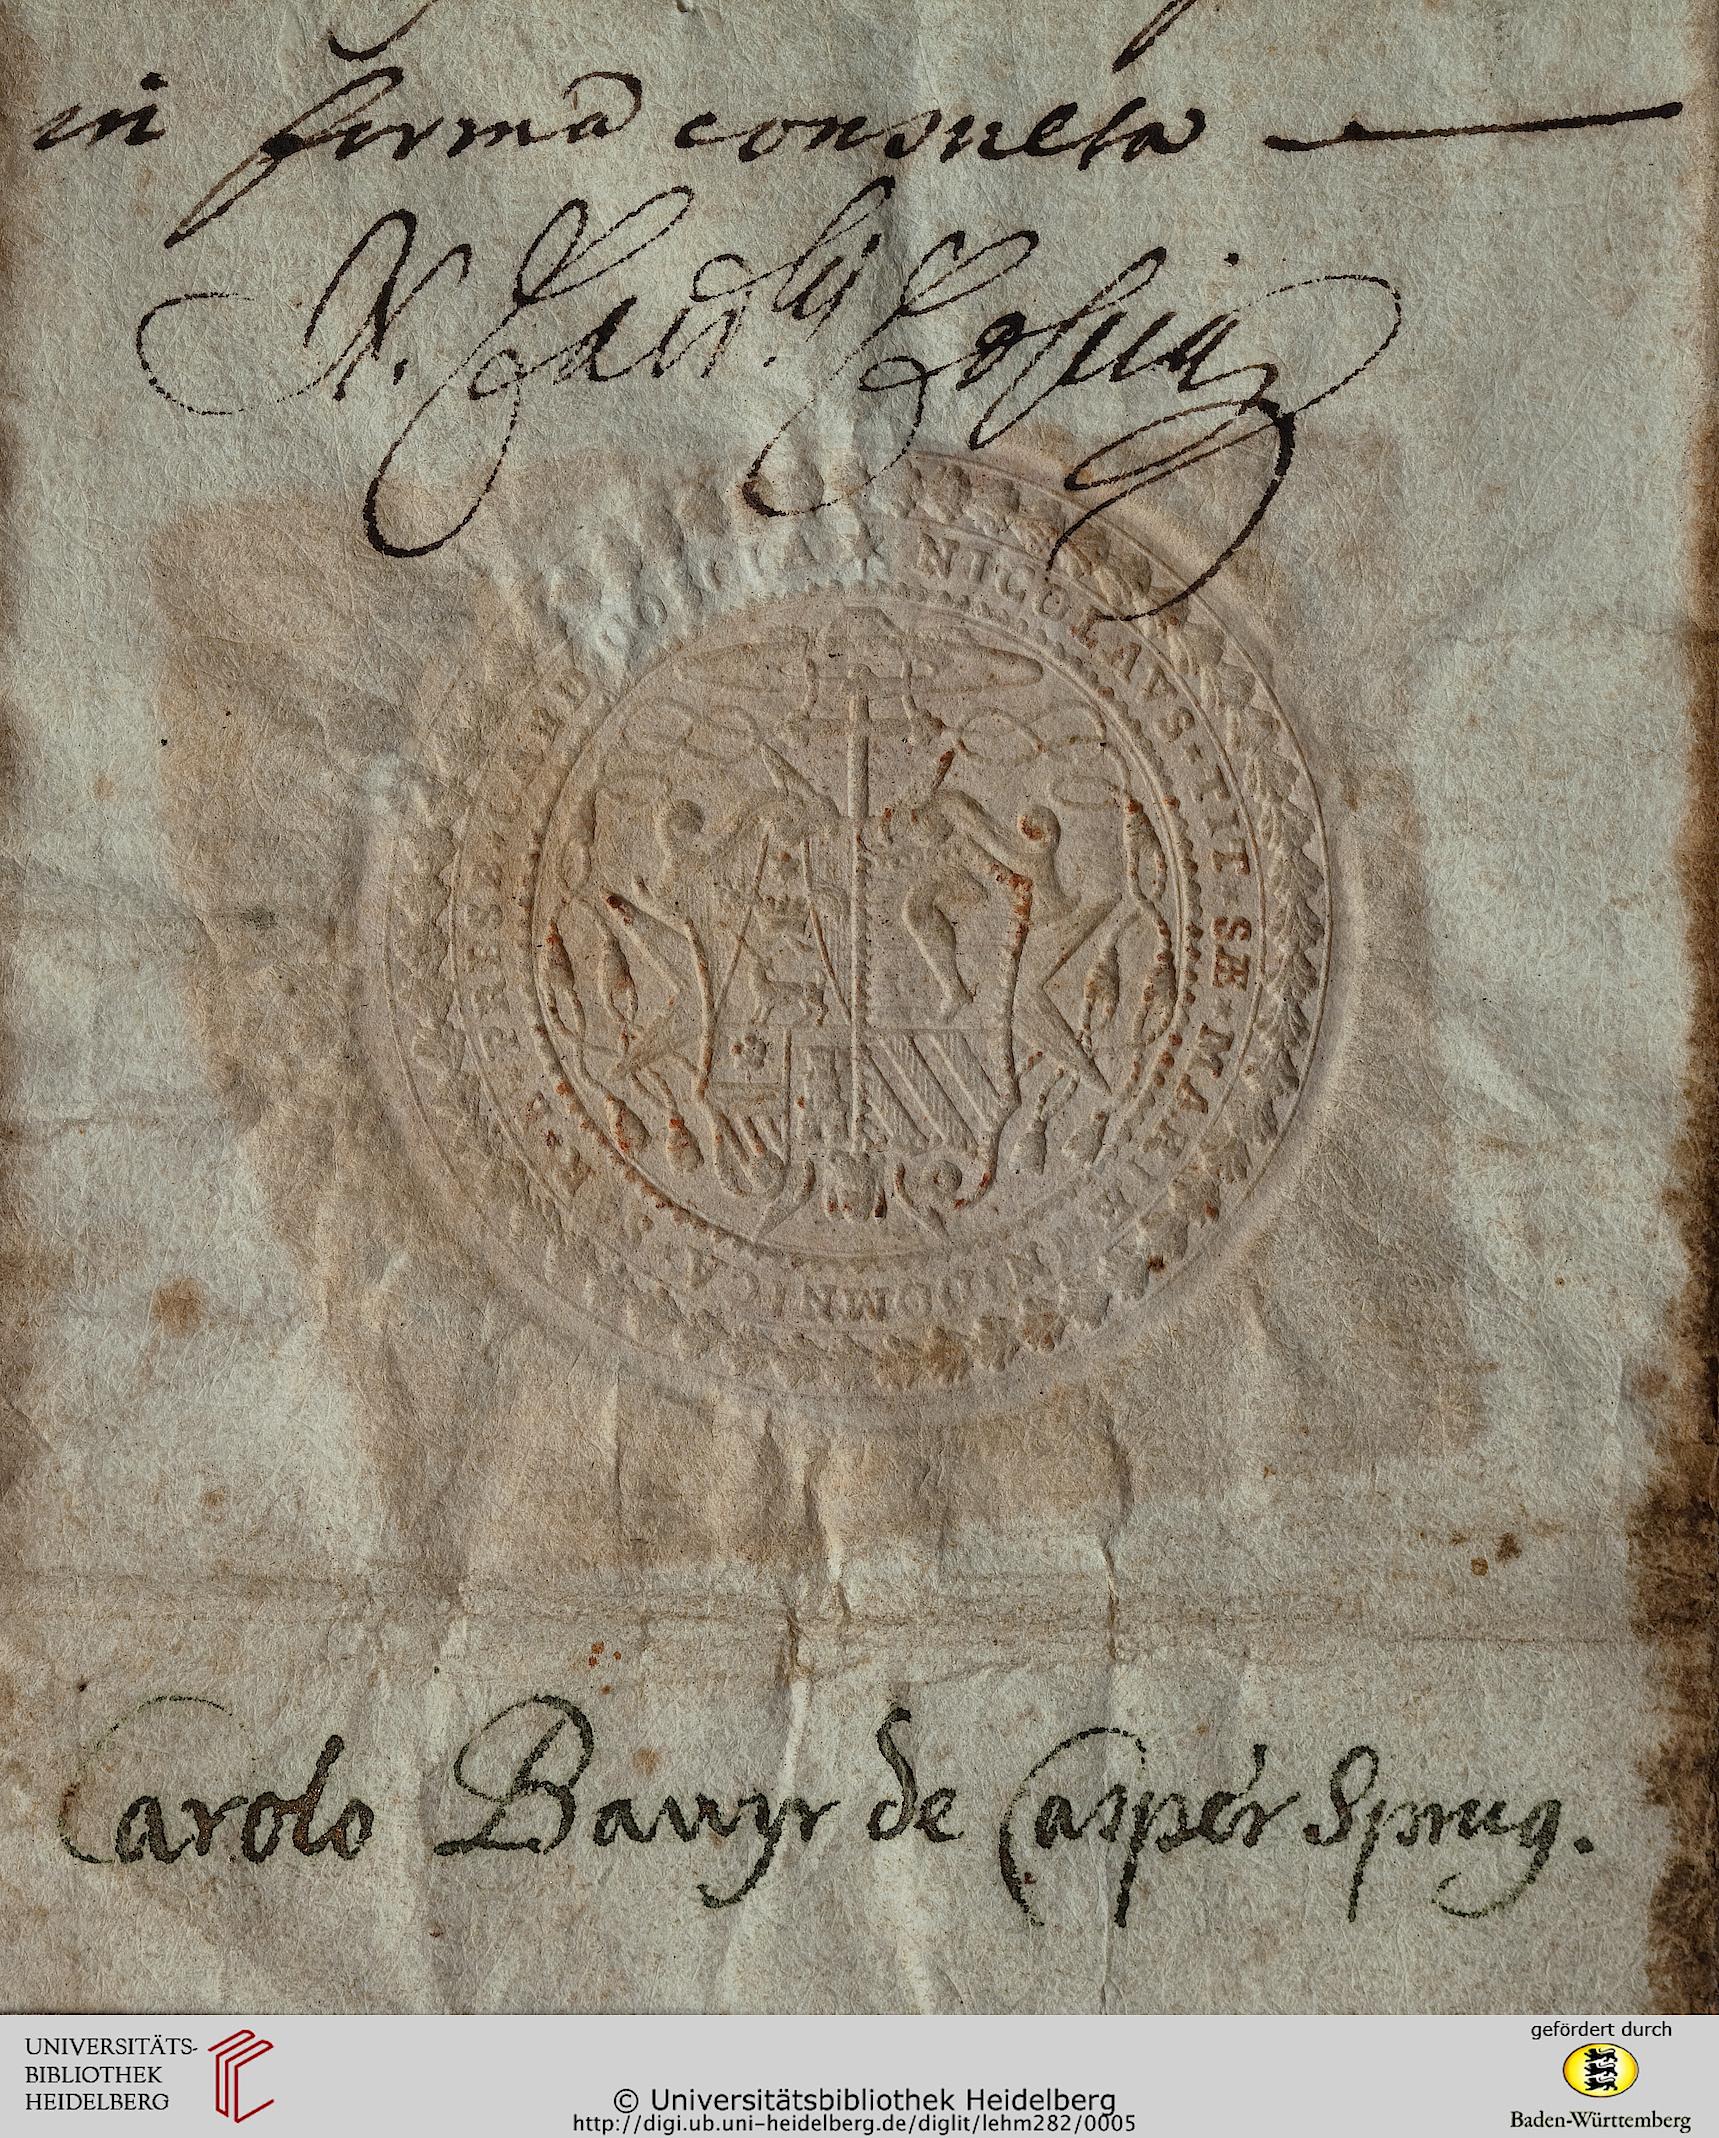 in formâ consueta
N. Card.lis Coscia
NICOLAVS · TIT · SÆ · MARIÆ IN DOMNICA
PRESB CARD COSCIA
Carolo Bavyr de Caspér Sprug.
UNIVERSITÄTS-
BIBLIOTHEK
HEIDELBERG
© Universitätsbibliothek Heidelberg
http://digi.ub.uni-heidelberg.de/diglit/lehm282/0005
gefördert durch
Baden-Württemberg